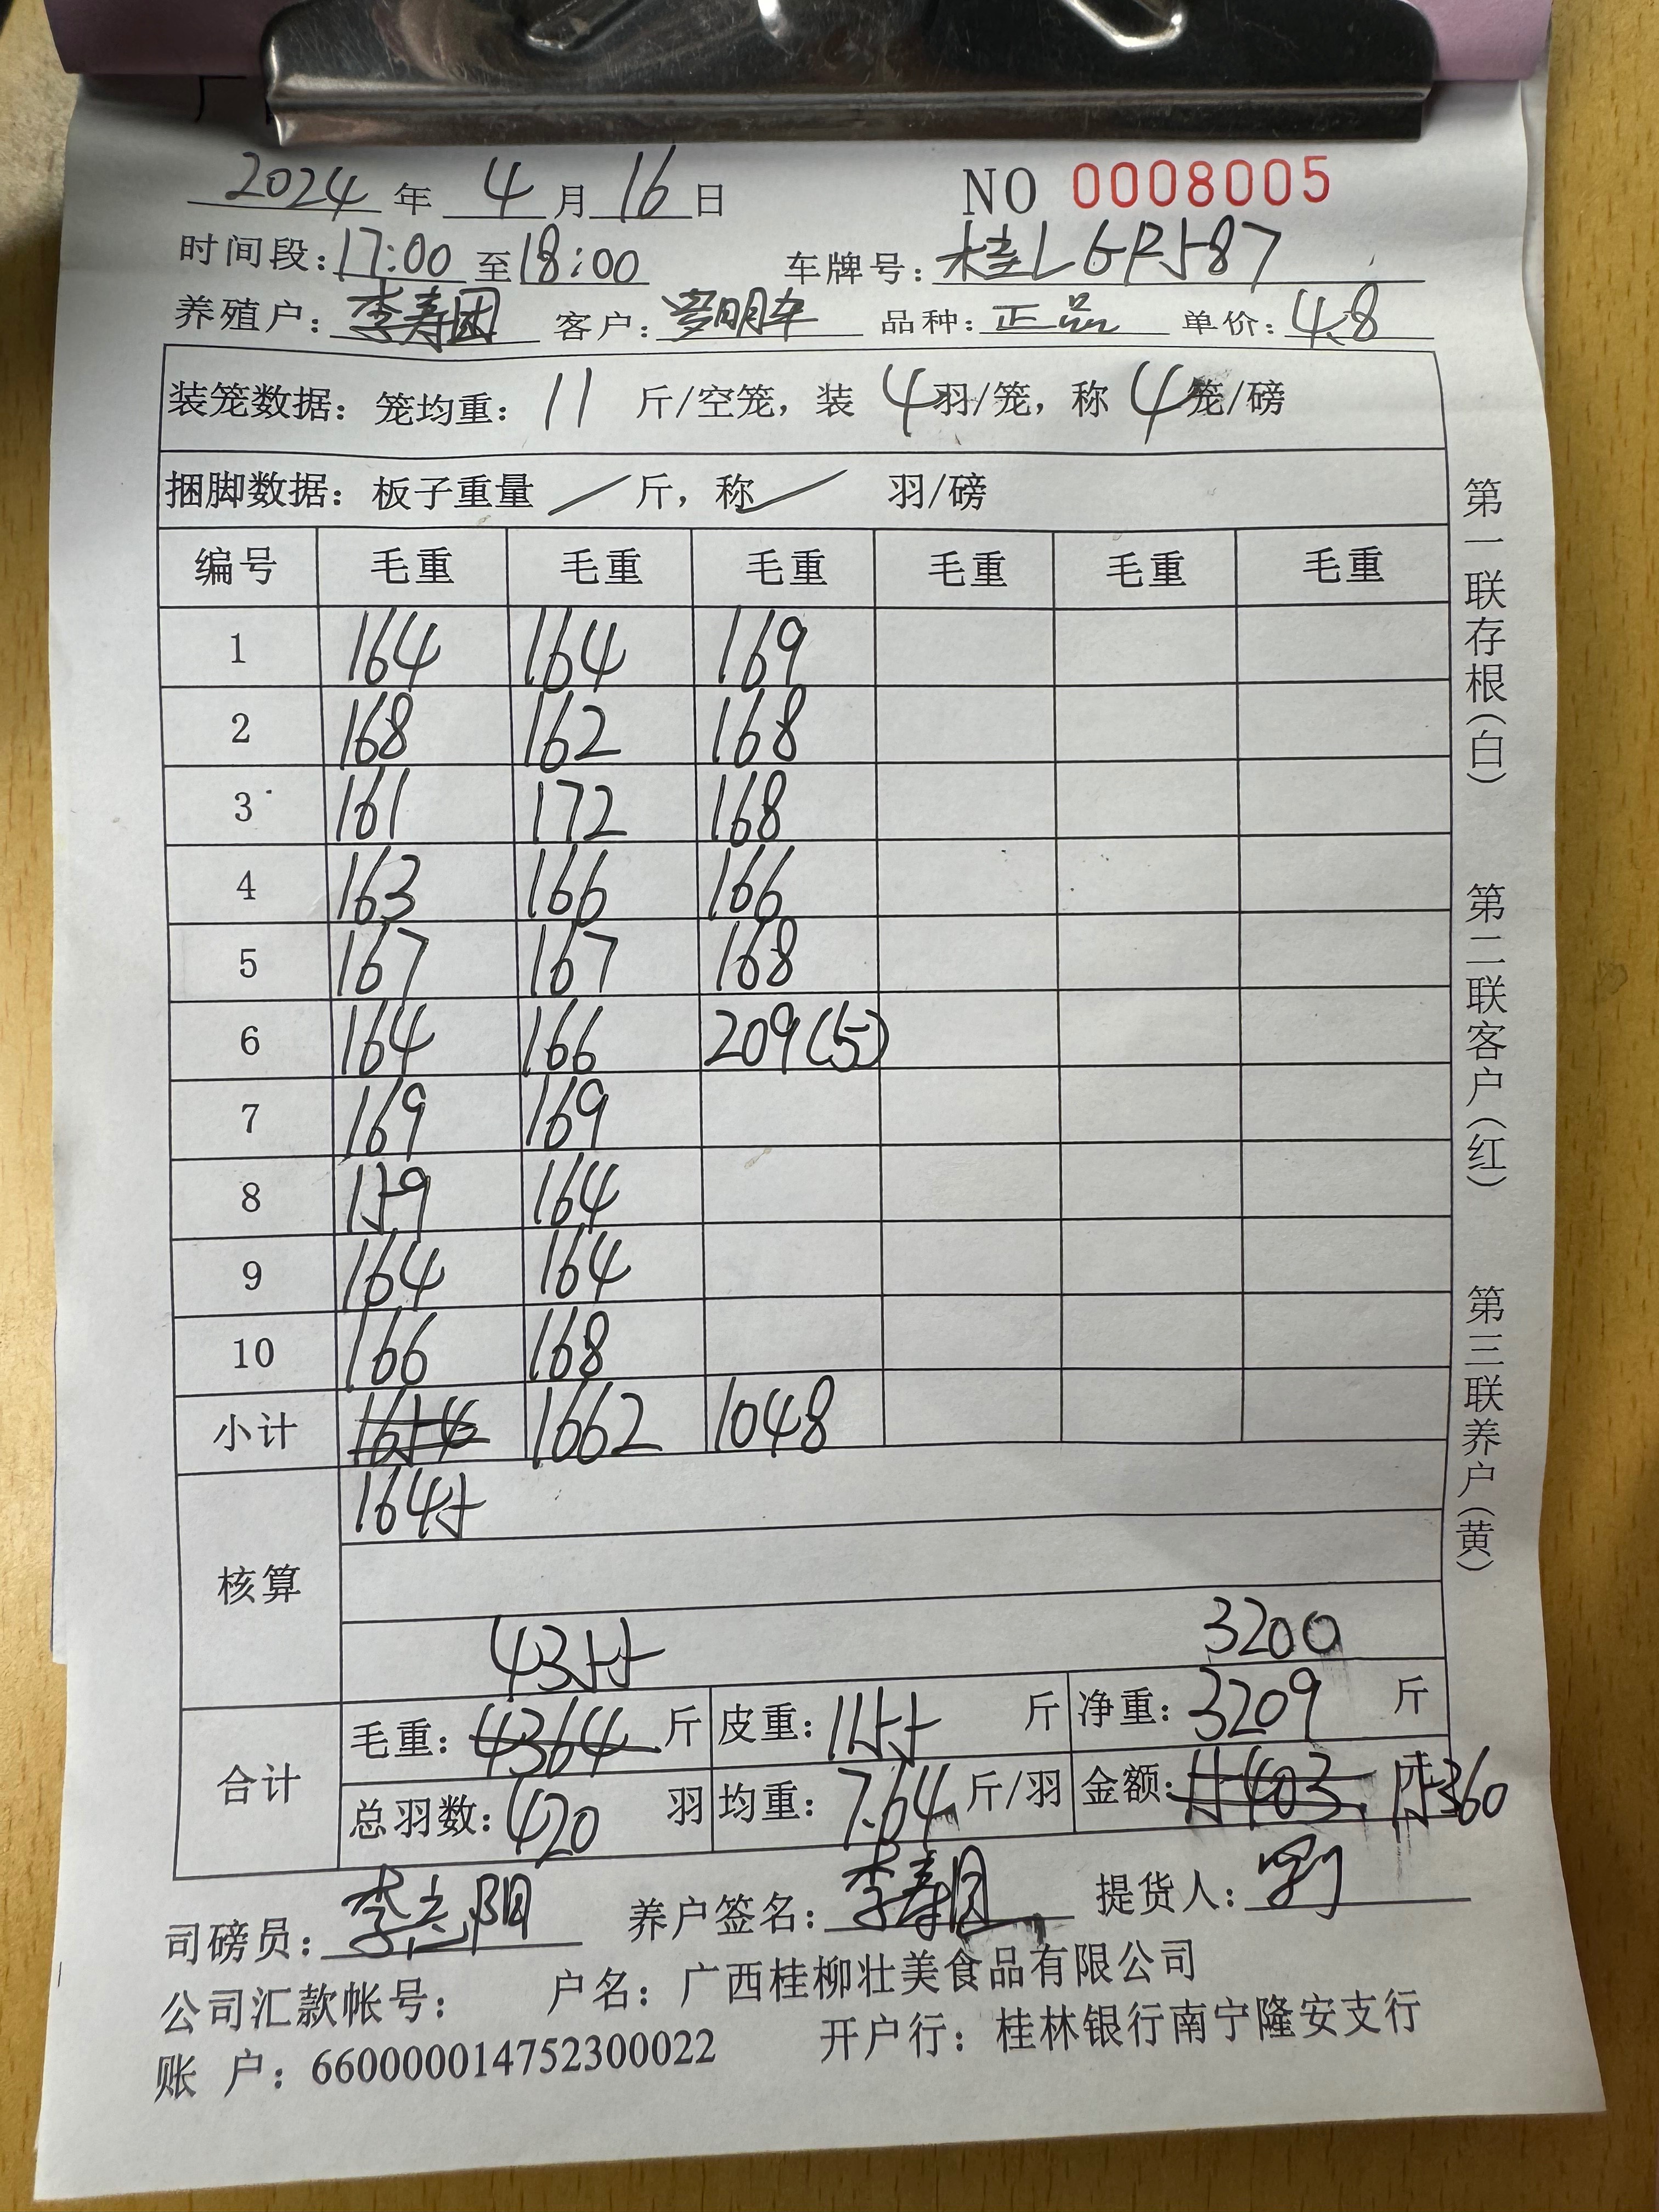 2024 年 4 月 16 日 NO 0008005
时间段：17:00 至 18:00 车牌号：桂L6F587
养殖户：李寿团 客户： 品种：正品 单价：4.8
装笼数据：笼均重：11 斤/空笼，装 4 羽/笼，称 4 笼/磅
捆脚数据：板子重量 / 斤，称 / 羽/磅
编号 毛重 毛重 毛重 毛重 毛重 毛重
1 164 164 169
2 168 162 168
3 161 172 168
4 163 166 166
5 167 167 168
6 164 166 209(5)
7 169 169
8 159 164
9 164 164
10 166 168
小计 1654 1662 1048
1645
核算
4355 3200
合计
毛重：4364 斤 皮重：1155 斤 净重：3209 斤
总羽数：420 羽 均重：7.64 斤/羽 金额：15403 15360
司磅员：李志阳 养户签名：李寿团 提货人：
公司汇款帐号： 户名：广西桂柳壮美食品有限公司
账 户：660000014752300022 开户行：桂林银行南宁隆安支行
第一联存根（白） 第二联客户（红） 第三联养户（黄）